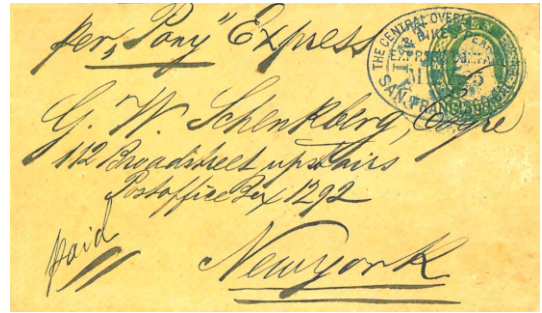 per „Pony” Express
THE CENTRAL OVERLAND
PIKES PEAK
EXPRESS COMPANY
SAN FRANCISCO CAL
G. W. Schenkberg, Esqre
112 Broadstreet upstairs
Postoffice Box 1292
paid
Newyork